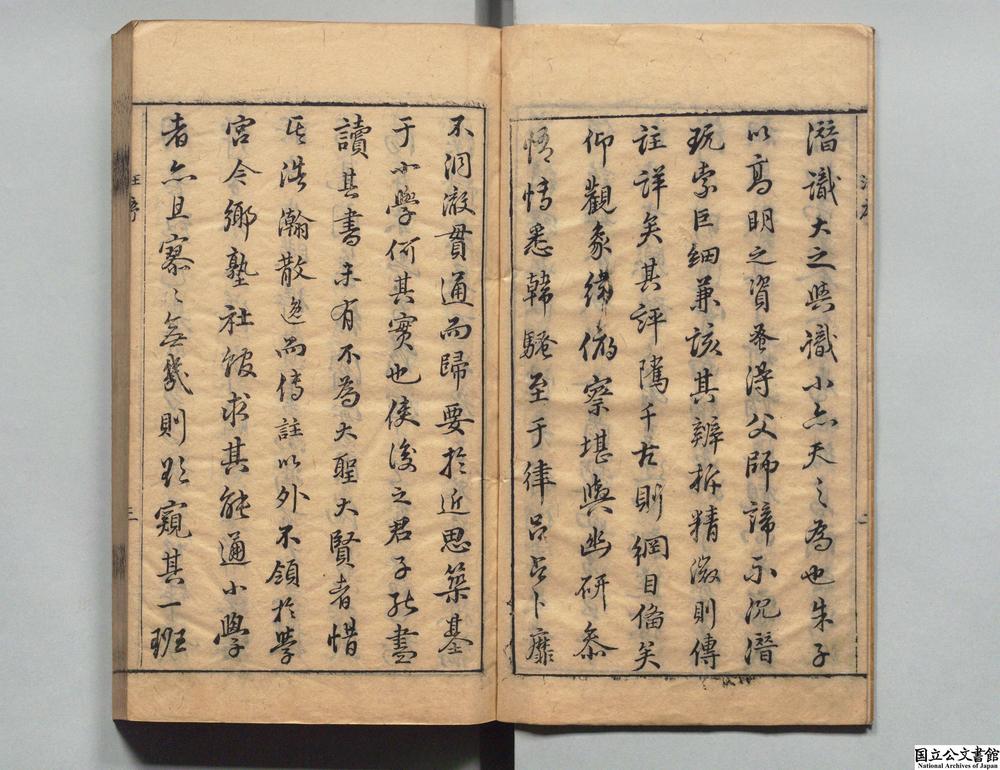 潛識大之與識小亦天之為也朱子
以高明之資蚤得父師諦示沉潛
玩索巨細兼該其辨析精微則傳
註詳矣其評隲千古則綱目俻矣
仰觀象緯俯察堪輿幽研參
悟情悉韓騷至于律呂占卜靡
不洞徹貫通而歸要扵近思築基
于小學何其實也使後之君子能盡
讀其書未有不為大聖大賢者惜
其浩瀚散逸而傳註以外不領扵學
宮今鄉塾社館求其能通小學
者亦且寥〻無幾則欲窺其一班
汪序
二
三
国立公文書館
National Archives of Japan